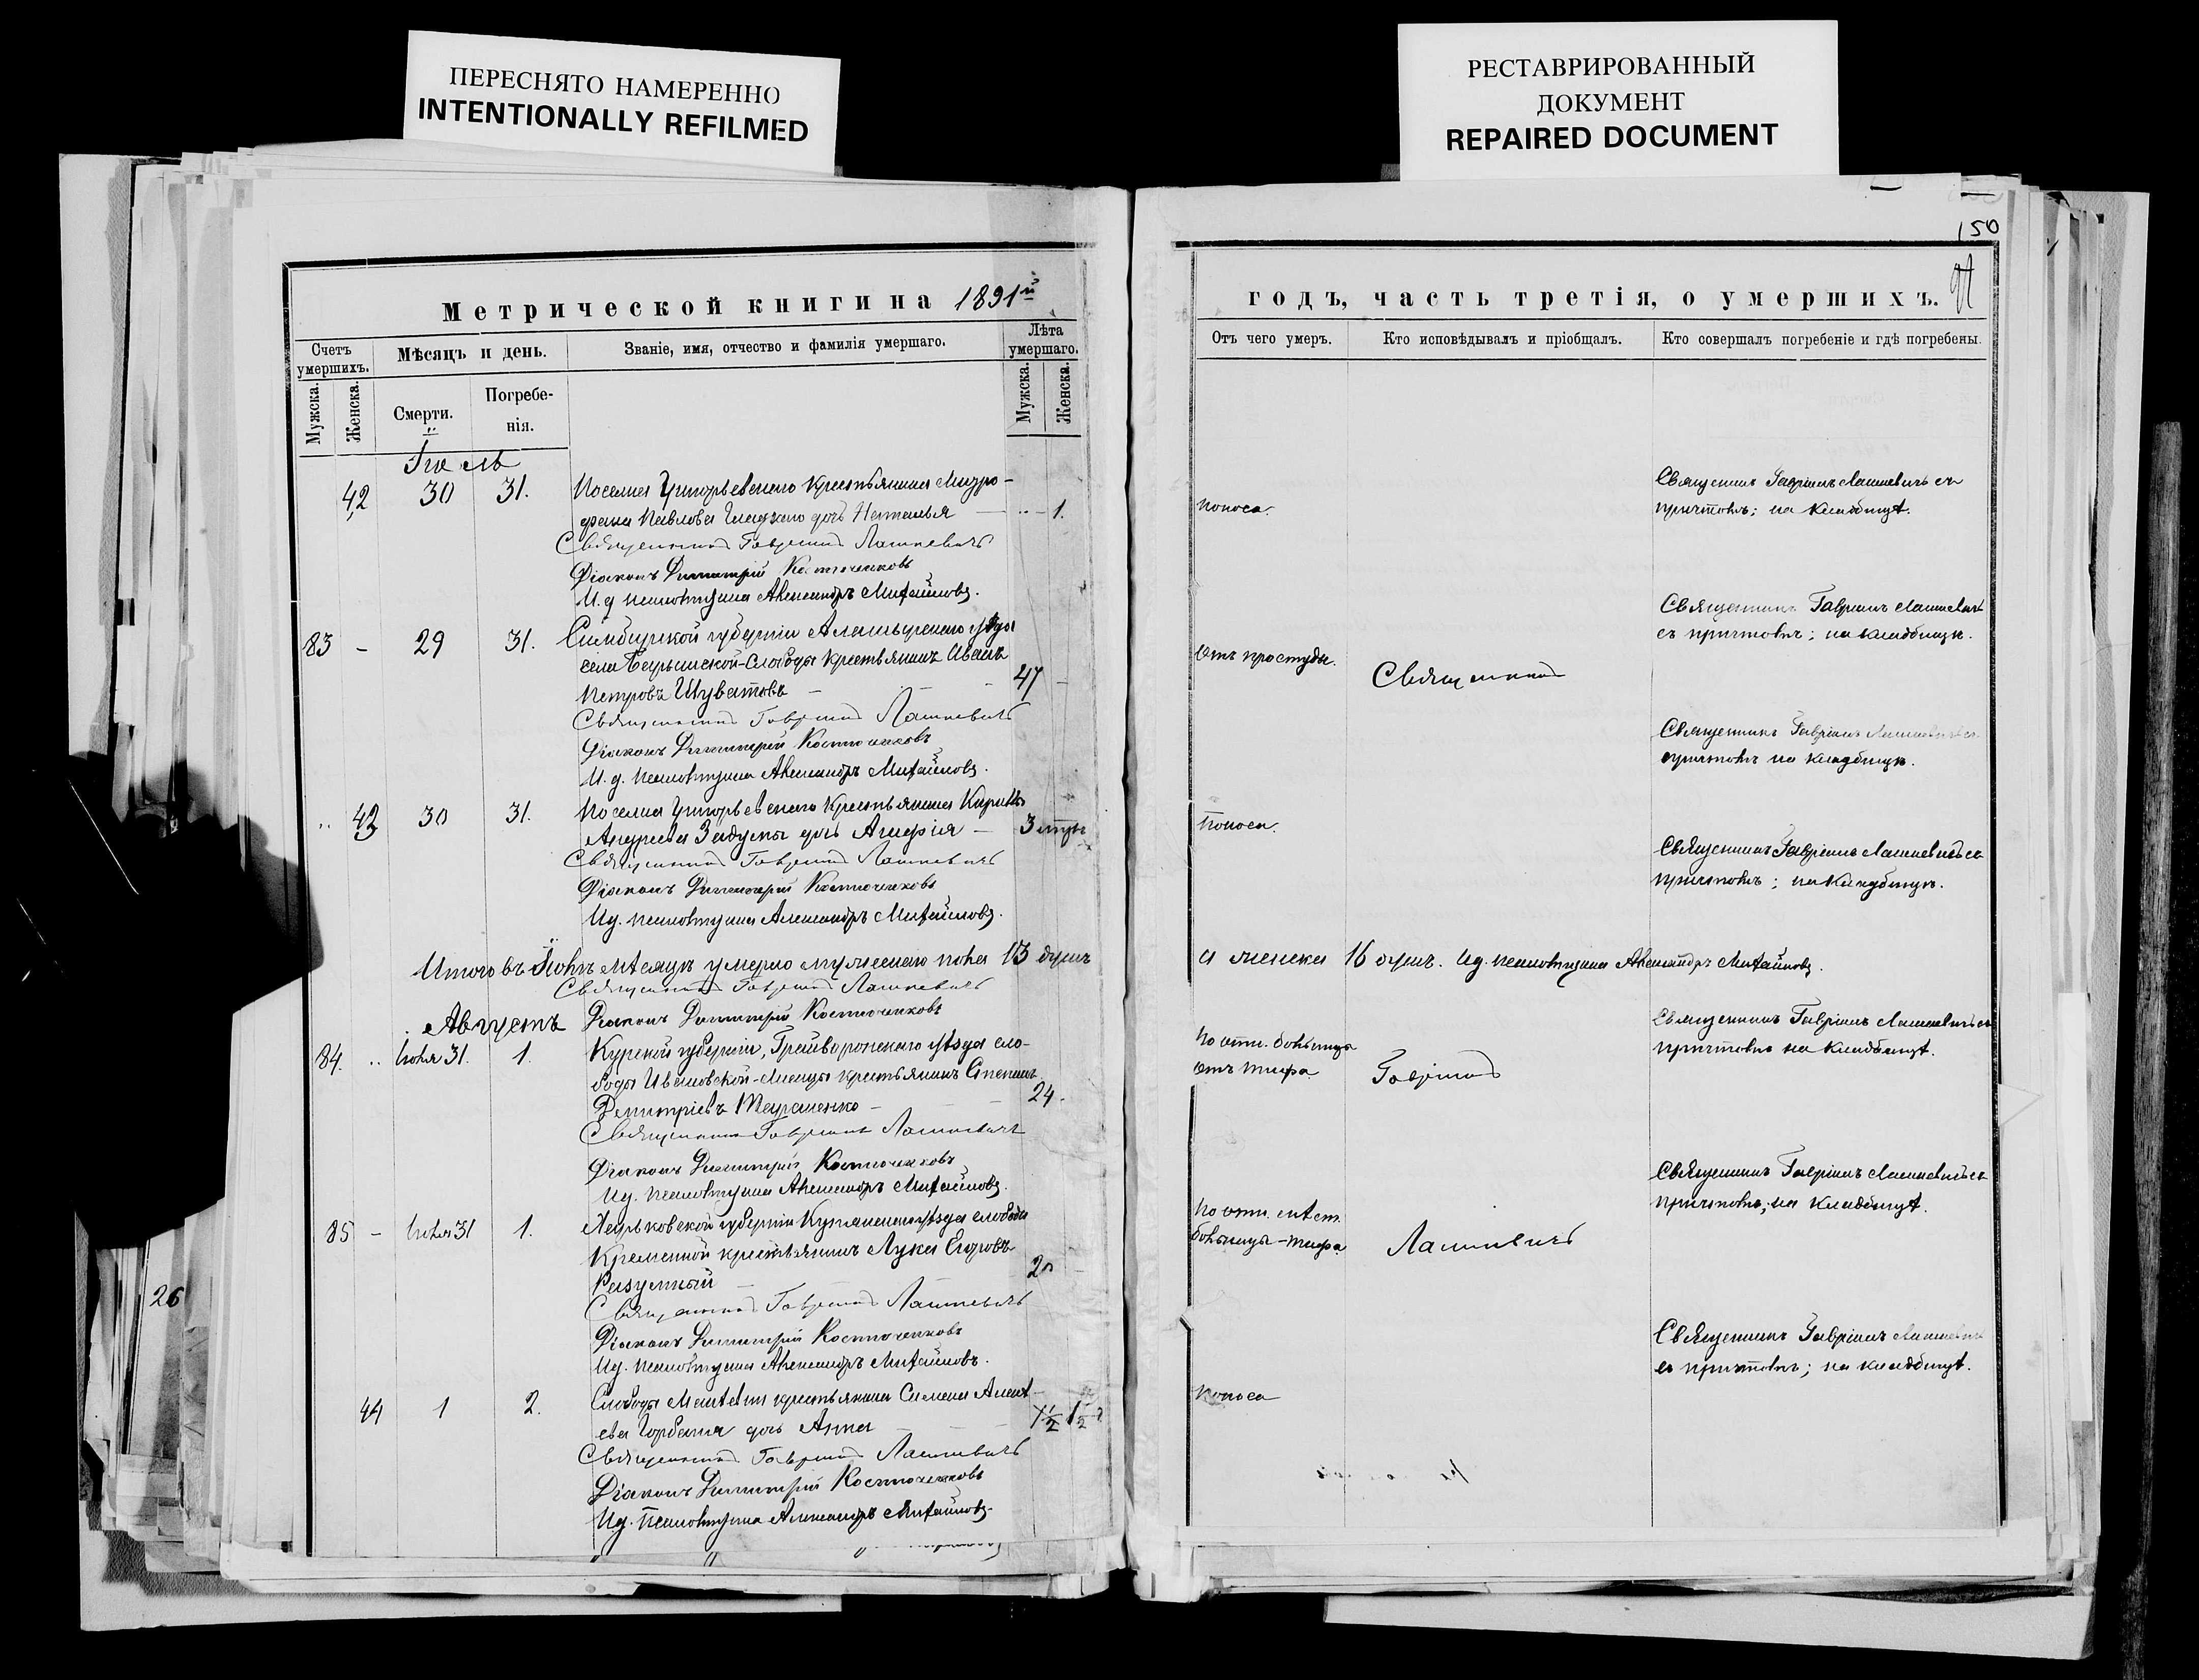 ПЕРЕСНЯТО НАМЕРЕННО
INTENTIONALLY REFILMED
РЕСТАВРИРОВАННЫЙ
ДОКУМЕНТ
REPAIRED DOCUMENT
150
Метрической книги на 1891й
Счетъ умершихъ.
Мѣсяцъ и день.
Званіе, имя, отчество и фамилія умершаго.
Лѣта умершаго.
Мужска.
Женска.
Смерти.
Погребе-
нія.
Мужска.
Женска.
Іюль
42 30 31. крестьянина Митро-
фана Павлова дочь Наталья 1.
Священникъ Гавріилъ Лашкевичъ
Діаконъ Димитрій Костюченковъ
И. д. псаломщика Александръ Михайловъ.
83 - 29 31. Симбирской губерніи уѣзда
села Слободы крестьянинъ Иванъ
Петровъ Шуватовъ - 47 -
Священникъ Гавріилъ Лашкевичъ
Діаконъ Димитрій Костюченковъ
И. д. псаломщика Александръ Михайловъ.
43 30 31. крестьянина
Андреева дочь - 3
Священникъ Гавріилъ Лашкевичъ
Діаконъ Димитрій Костюченковъ
Ид. псаломщика Александръ Михайловъ.
Итого въ Іюлѣ мѣсяцѣ умерло мужескаго пола 13 душъ
Священникъ Гавріилъ Лашкевичъ
Августъ Діаконъ Димитрій Костюченковъ
84. Іюля 31. 1. Курской губерніи, Грайворонскаго уѣзда сло-
боды Ивановской-Лисицы крестьянинъ Стефанъ
Димитріевъ Тарашенко - 24 -
Священникъ Гавріилъ Лашкевичъ
Діаконъ Димитрій Костюченковъ
Ид. псаломщика Александръ Михайловъ.
85 - Іюля 31 1. Харьковской губерніи Купянскаго уѣзда слободы
Кременной крестьянинъ Лука Егоровъ
Разумный - 20 -
Священникъ Гавріилъ Лашкевичъ
Діаконъ Димитрій Костюченковъ
Ид. псаломщика Александръ Михайловъ.
44 1 2. Слободы крестьянина Семена Алексѣ-
ева Горбаня дочь Анна 1½
Священникъ Гавріилъ Лашкевичъ
Діаконъ Димитрій Костюченковъ
Ид. псаломщика Александръ Михайловъ.
26
годъ, часть третія, о умершихъ.
Отъ чего умеръ.
Кто исповѣдывалъ и пріобщалъ.
Кто совершалъ погребеніе и гдѣ погребены.
поноса.
Священникъ Гавріилъ Лашкевичъ съ
причтомъ; на кладбищѣ.
Священникъ Гавріилъ Лашкевичъ
съ причтомъ; на кладбищѣ.
Отъ простуды.
Священникъ
Священникъ Гавріилъ Лашкевичъ съ
причтомъ на кладбищѣ.
Поноса.
Священникъ Гавріилъ Лашкевичъ съ
причтомъ; на кладбищѣ.
а женска 16 душъ. Ид. псаломщика Александръ Михайловъ.
Священникъ Гавріилъ Лашкевичъ съ
причтомъ на кладбищѣ.
По отн. больницы
отъ тифа.
Гавріилъ
Священникъ Гавріилъ Лашкевичъ съ
причтомъ; на кладбищѣ.
По отн. мѣст.
больницы - тифа.
Лашкевичъ
Священникъ Гавріилъ Лашкевичъ
съ причтомъ; на кладбищѣ.
поноса